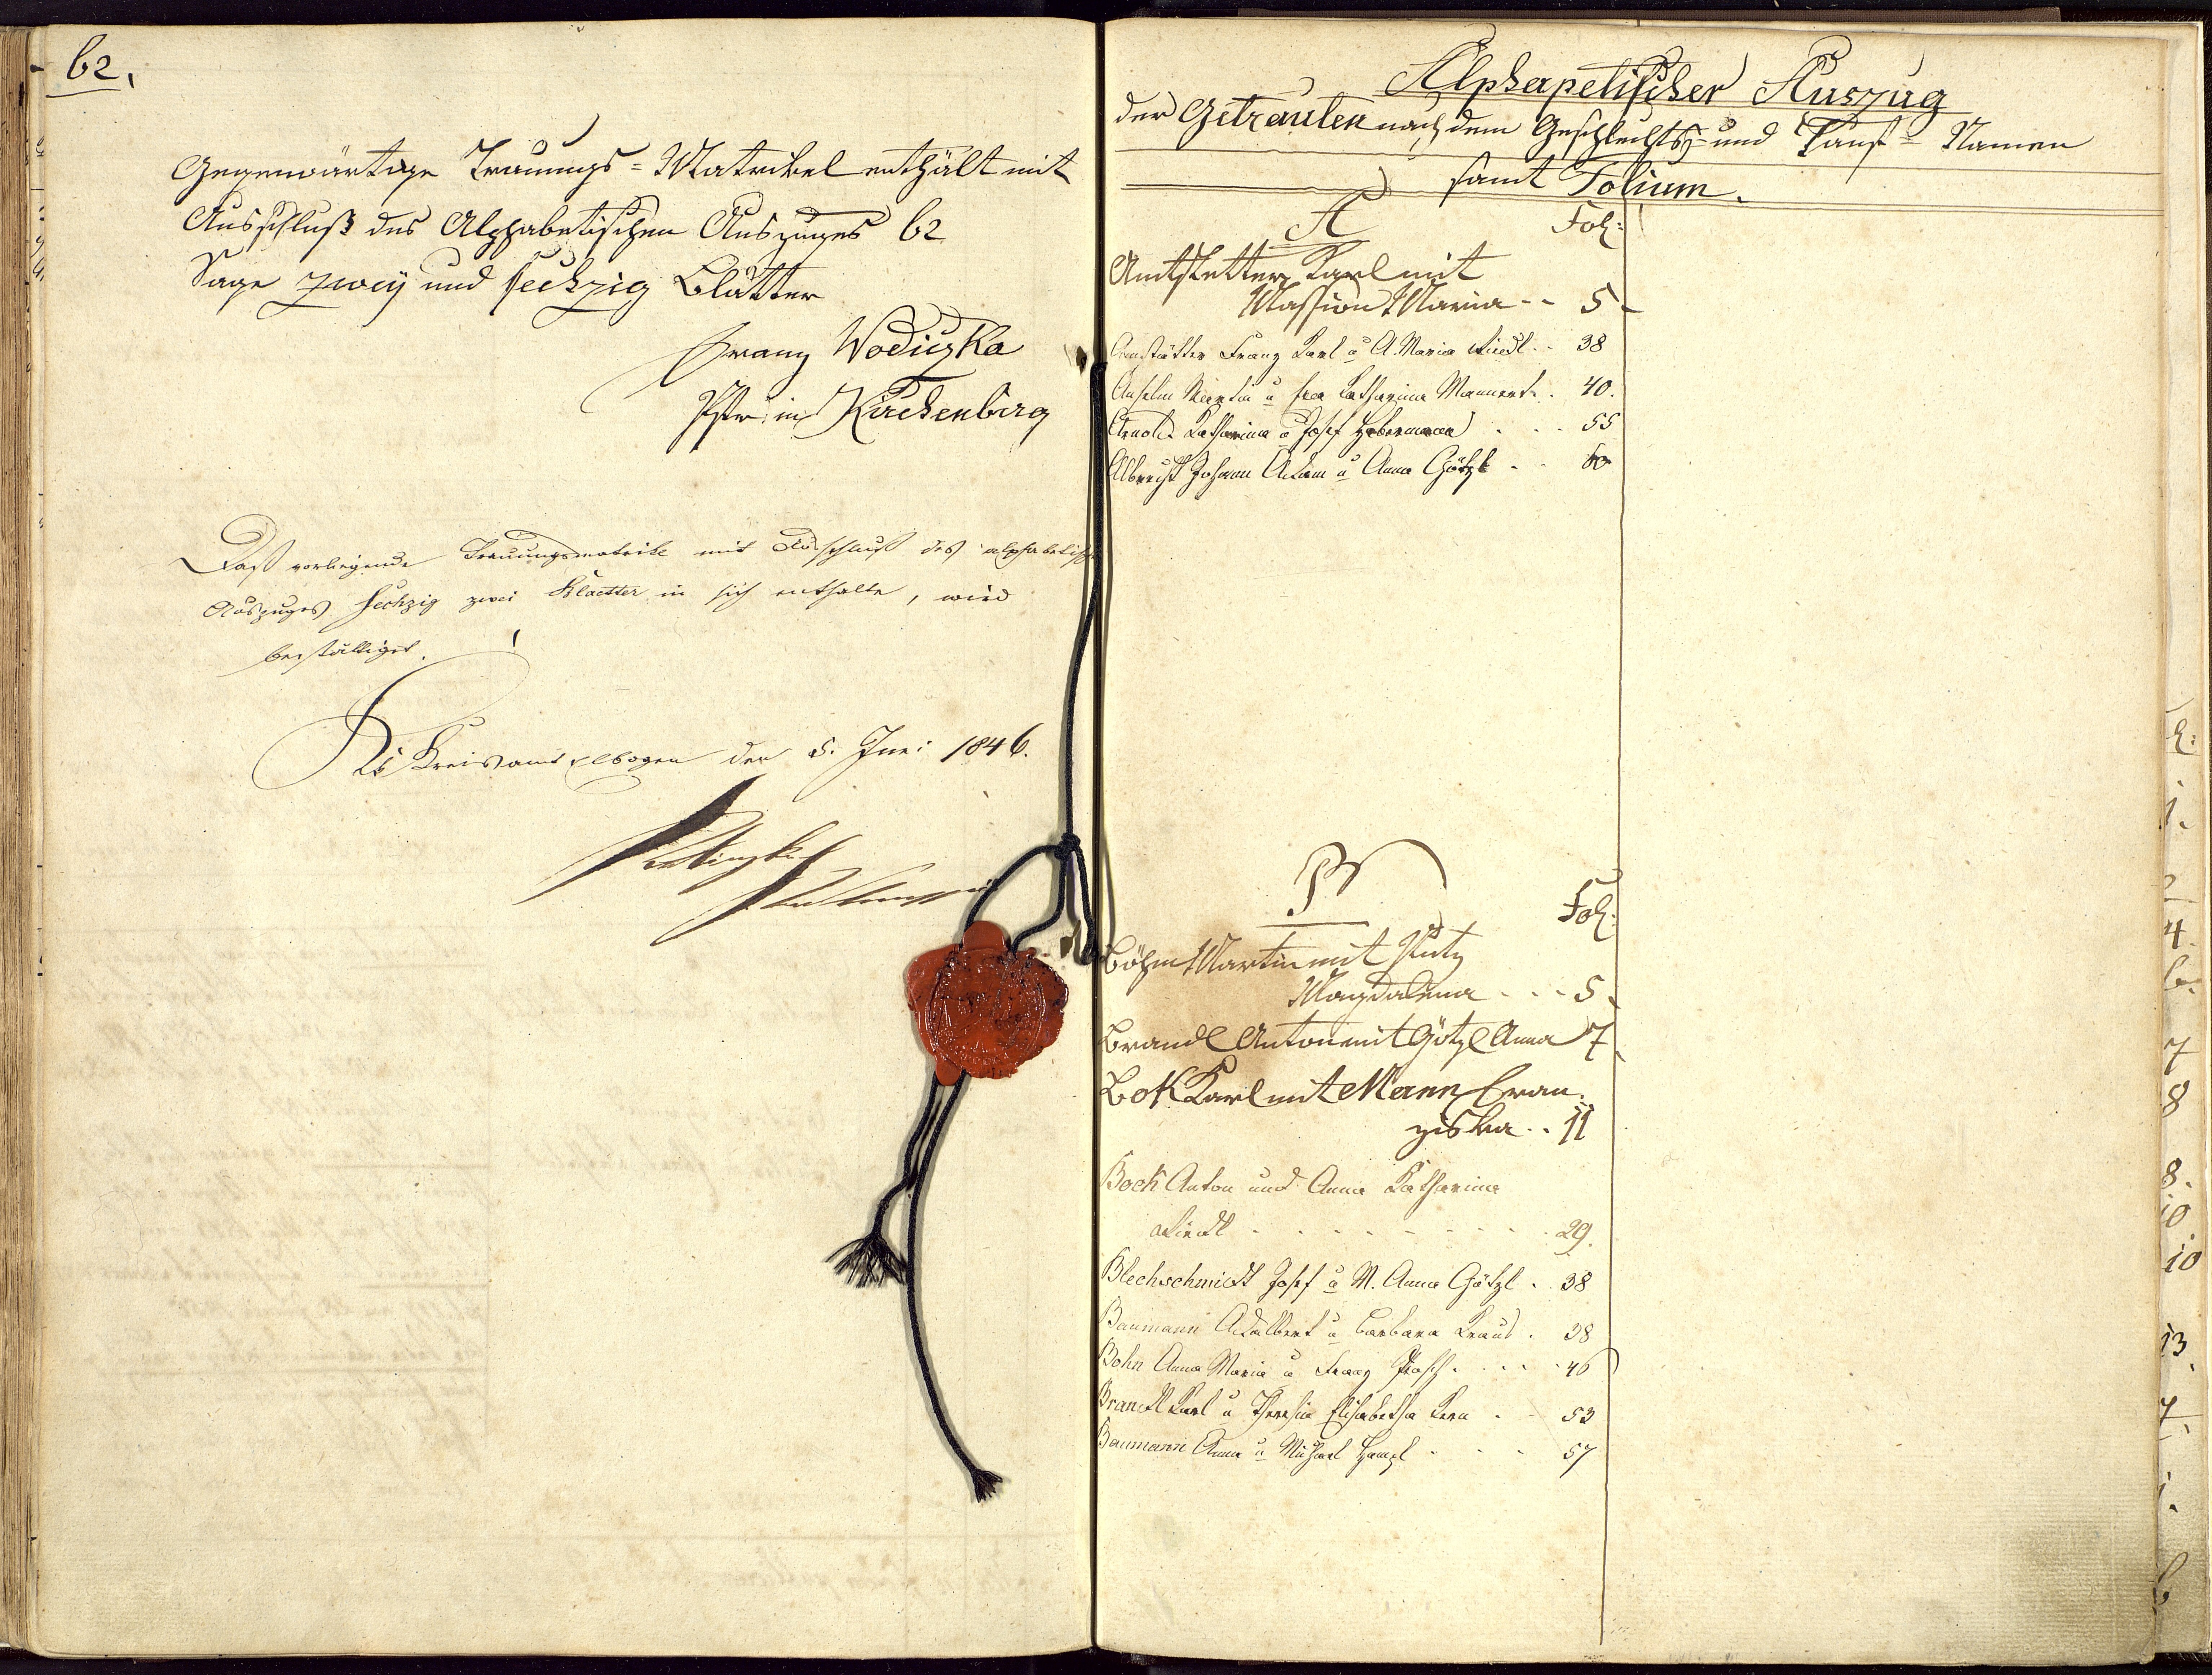 62.
Gegenwärtige Trauungs=Matrikel enthält mit
Ausschluß des Alphabetischen Auszuges 62
Sage zwey und sechzig Blätter
Franz Wodiczka
Pfr: in Kirchenbirg
Daß vorliegende Trauungsmatrike mit Ausschluß des alphabetischen
Auszuges sechzig zwei Blaetter in sich enthalte, wird
bestättiget.
Kk Kreisamt Elbogen den 5. Juni 1846.
Alphapetischer Auszug
der Getrauten nach dem Geschlechts= und Tauf= Namen
samt Folium.
A Fol:
Amtstetter Karl mit
Massion Maria -- 5
Amstätter Franz Karl u A. Maria Riedl .. 38
Anselm Martin u Eva Katharina Mannert . 40.
Arnold Katharina u Josef Habermann . . . 55
Albrecht Johann Adam u Anna Götzl . . 60
B
Fol:
Böhm Martin mit Putz
Magdalena . . . 5
Brandl Anton mit Götzl Anna 7
Bok Karl mit Mann Fran
ziska . . 11
Bock Anton und Anna Katharina
Riedl . . . . . . . . 29.
Blechschmidt Josef u M. Anna Götzl . 38
Baumann Adalbert u Barbara Kraus . 38
Bohn Anna Maria u Franz Pasch . . . . 46
Brandl Karl u Theresia Elisabetha Kern . . 53
Baumann Anna u Michael Hampl . . . 57